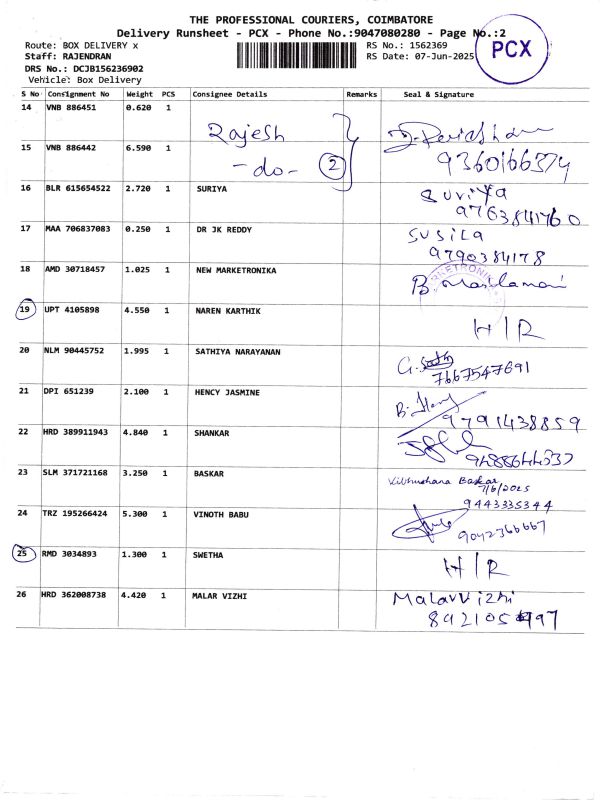 THE PROFESSIONAL COURIERS, COIMBATORE
Delivery Runsheet - PCX - Phone No.:9047080280 - Page No.:2
Route: BOX DELIVERY x RS No.: 1562369
Staff: RAJENDRAN RS Date: 07-Jun-2025
PCX
DRS No.: DCJB156236902
Vehicle: Box Delivery
S No Consignment No Weight PCS Consignee Details Remarks Seal & Signature
14 VNB 886451 0.620 1 Rajesh
15 VNB 886442 6.590 1 -do- 2 9360166374
16 BLR 615654522 2.720 1 SURIYA Suriya
9763841760
17 MAA 706837083 0.250 1 DR JK REDDY SUSILA
9790384178
18 AMD 30718457 1.025 1 NEW MARKETRONIKA B.
19 UPT 4105898 4.550 1 NAREN KARTHIK H/R
20 NLM 90445752 1.995 1 SATHIYA NARAYANAN G.
7667547691
21 DPI 651239 2.100 1 HENCY JASMINE B.
9791438859
22 HRD 389911943 4.840 1 SHANKAR
23 SLM 371721168 3.250 1 BASKAR Vibhushana Baskar
7/6/2025
9443335344
24 TRZ 195266424 5.300 1 VINOTH BABU
9042366667
25 RMD 3034893 1.300 1 SWETHA H/R
26 HRD 362008738 4.420 1 MALAR VIZHI Malarvizhi